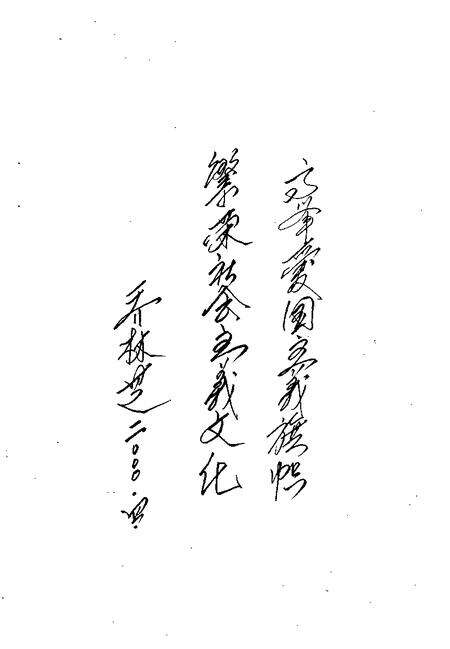 高举爱国主义旗帜
繁荣社会主义文化
乔林芝二〇〇〇.四.